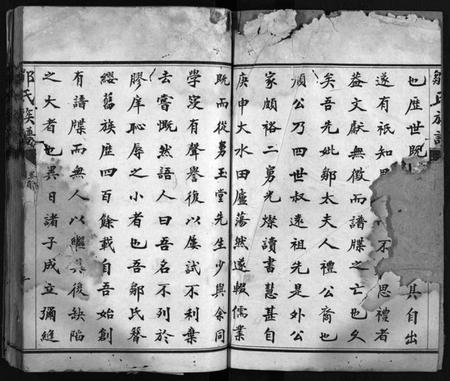 鄒氏族譜
也歷世既其自出
遂有祇知不思禮者
益文獻無徵而譜牒之亡也久
矣吾先妣鄒太夫人禮公裔也
順公乃四世叔遠祖先是外公
家頗裕二舅光燦讀書慧甚自
庚申大水田廬蕩然遂輟儒業
既而從舅玉堂先生少與余同
學寔有聲譽後以屢試不利棄
去嘗慨然語人曰吾名不列於
膠庠恥辱之小者也吾鄒氏簪
纓舊族歷四百餘載自吾始創
有譜牒而無人以繼其後缺陷
之大者也異日諸子成立彌縫
鄒氏族譜